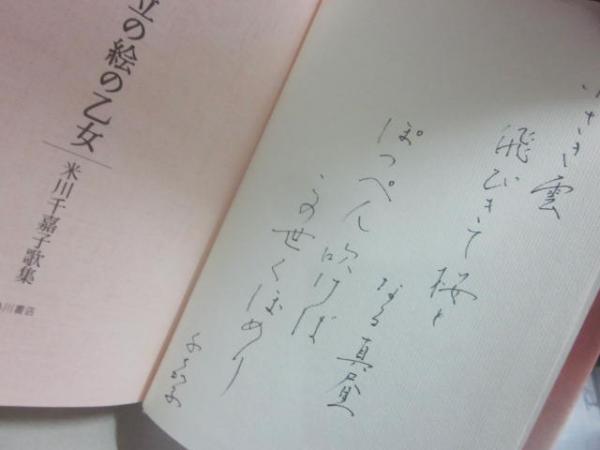 さき雲
飛びきて桜と
なる真昼
ぽっぺん吹けば
この世くぼめり
千嘉子
立の絵の乙女
米川千嘉子歌集
川書店